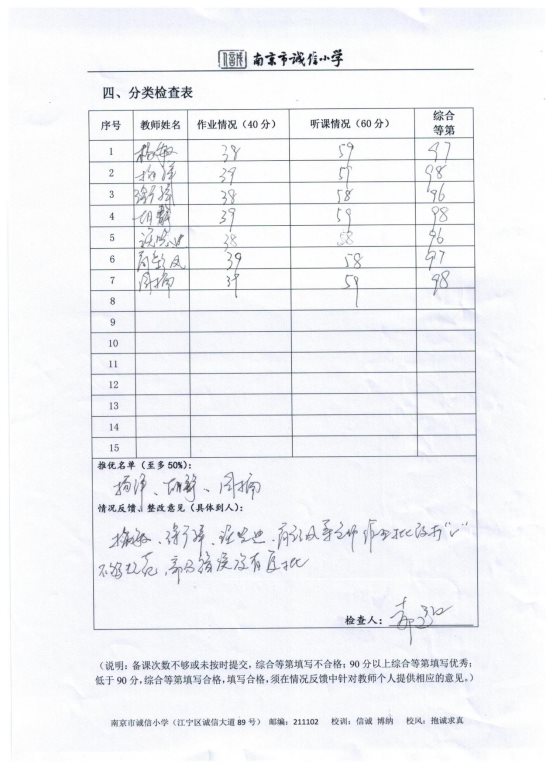 南京市诚信小学
四、分类检查表
序号 教师姓名 作业情况（40分） 听课情况（60分） 综合等第
1 杨敏 38 59 97
2 杨洋 39 59 98
3 38 58 96
4 胡静 39 59 98
5 38 58 96
6 39 58 97
7 周楠 39 59 98
8
9
10
11
12
13
14
15
推优名单（至多50%）：
杨洋、胡静、周楠
情况反馈、整改意见（具体到人）：
等老师作业批改打“√”
不够规范，部分错误没有复批
检查人：
（说明：备课次数不够或未按时提交，综合等第填写不合格；90分以上综合等第填写优秀；
低于90分，综合等第填写合格，填写合格，须在情况反馈中针对教师个人提供相应的意见。）
南京市诚信小学（江宁区诚信大道89号） 邮编：211102 校训：信诚 博纳 校风：抱诚求真